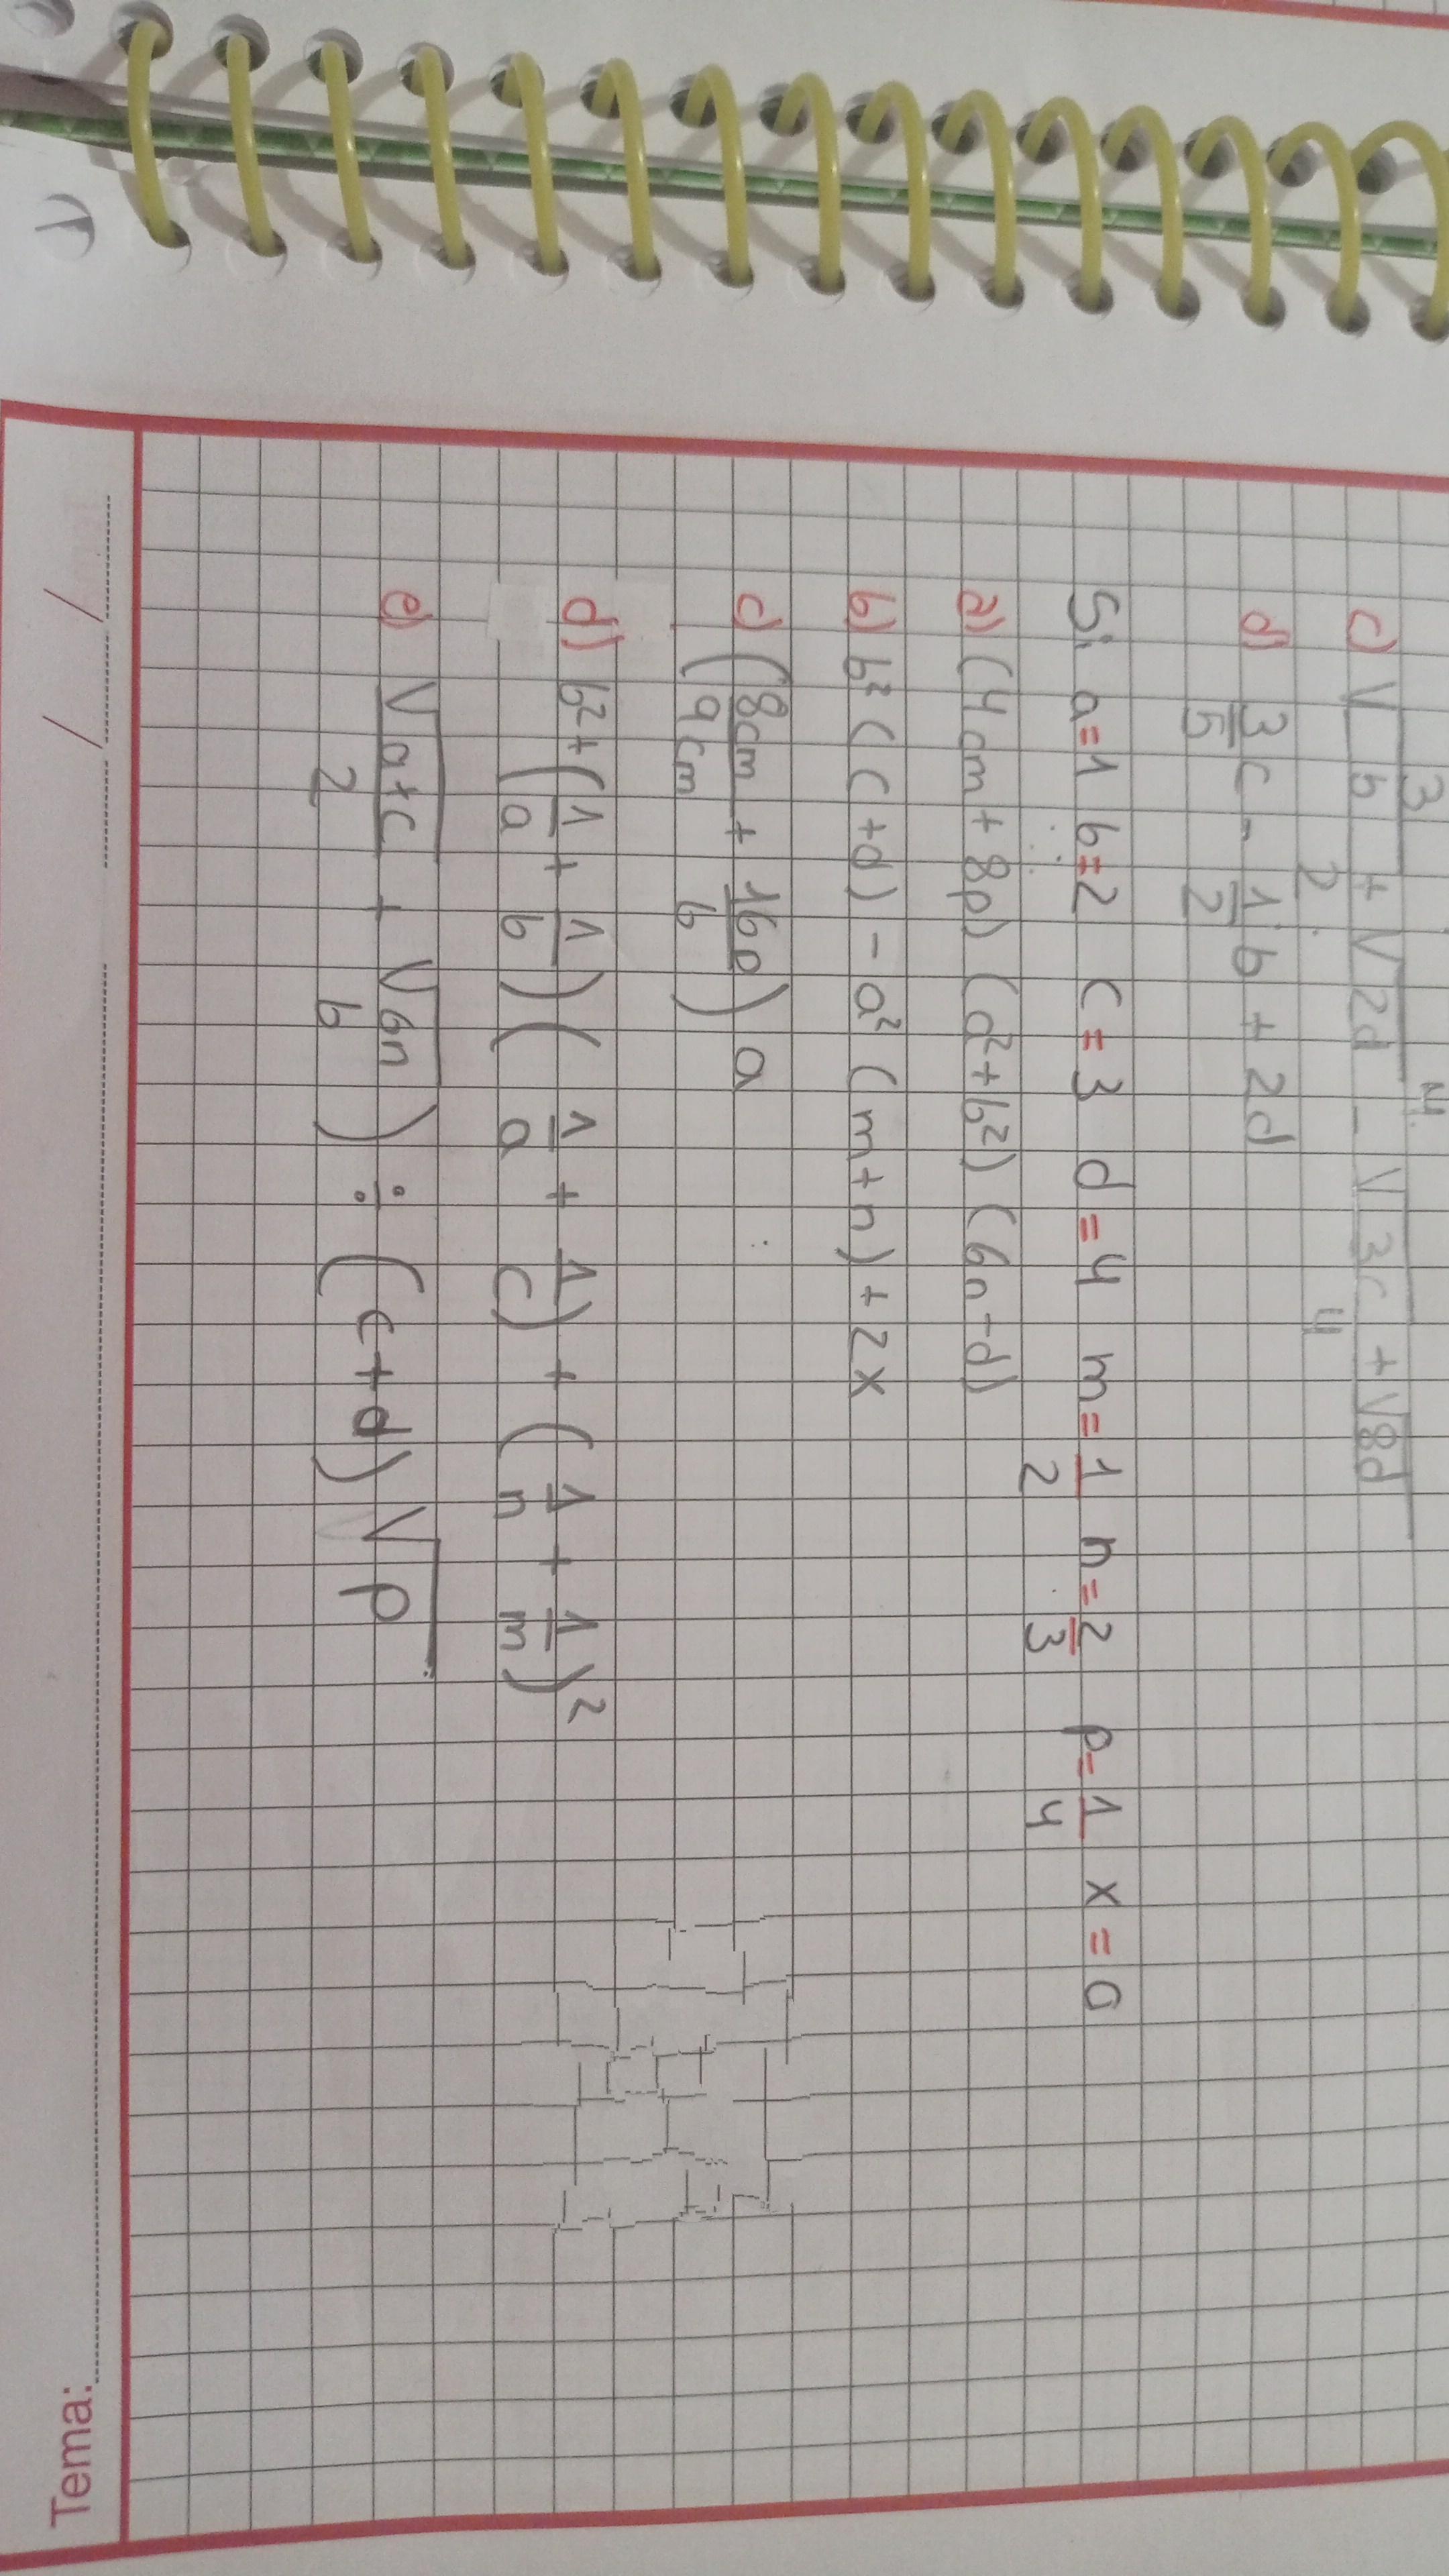 c) √b/2 + √2d/2 - √3c/4 + √8d
d) 3/5 c - 1/2 b + 2d
Si a=1 b=2 c=3 d=4 m=1/2 n=2/3 p=1/4 x=0
a) (4cm+8p) (a²+b²) (6n-d)
b) b² (c+d) - a² (m+n) + 2x
c) (8cm/9cm + 16p/b) a
d) b²+(1/a + 1/b)( 1/a + 1/c) + (1/n + 1/m)²
e) √a+c/2 + √6n/b ) ÷ (c+d) √p
Tema: